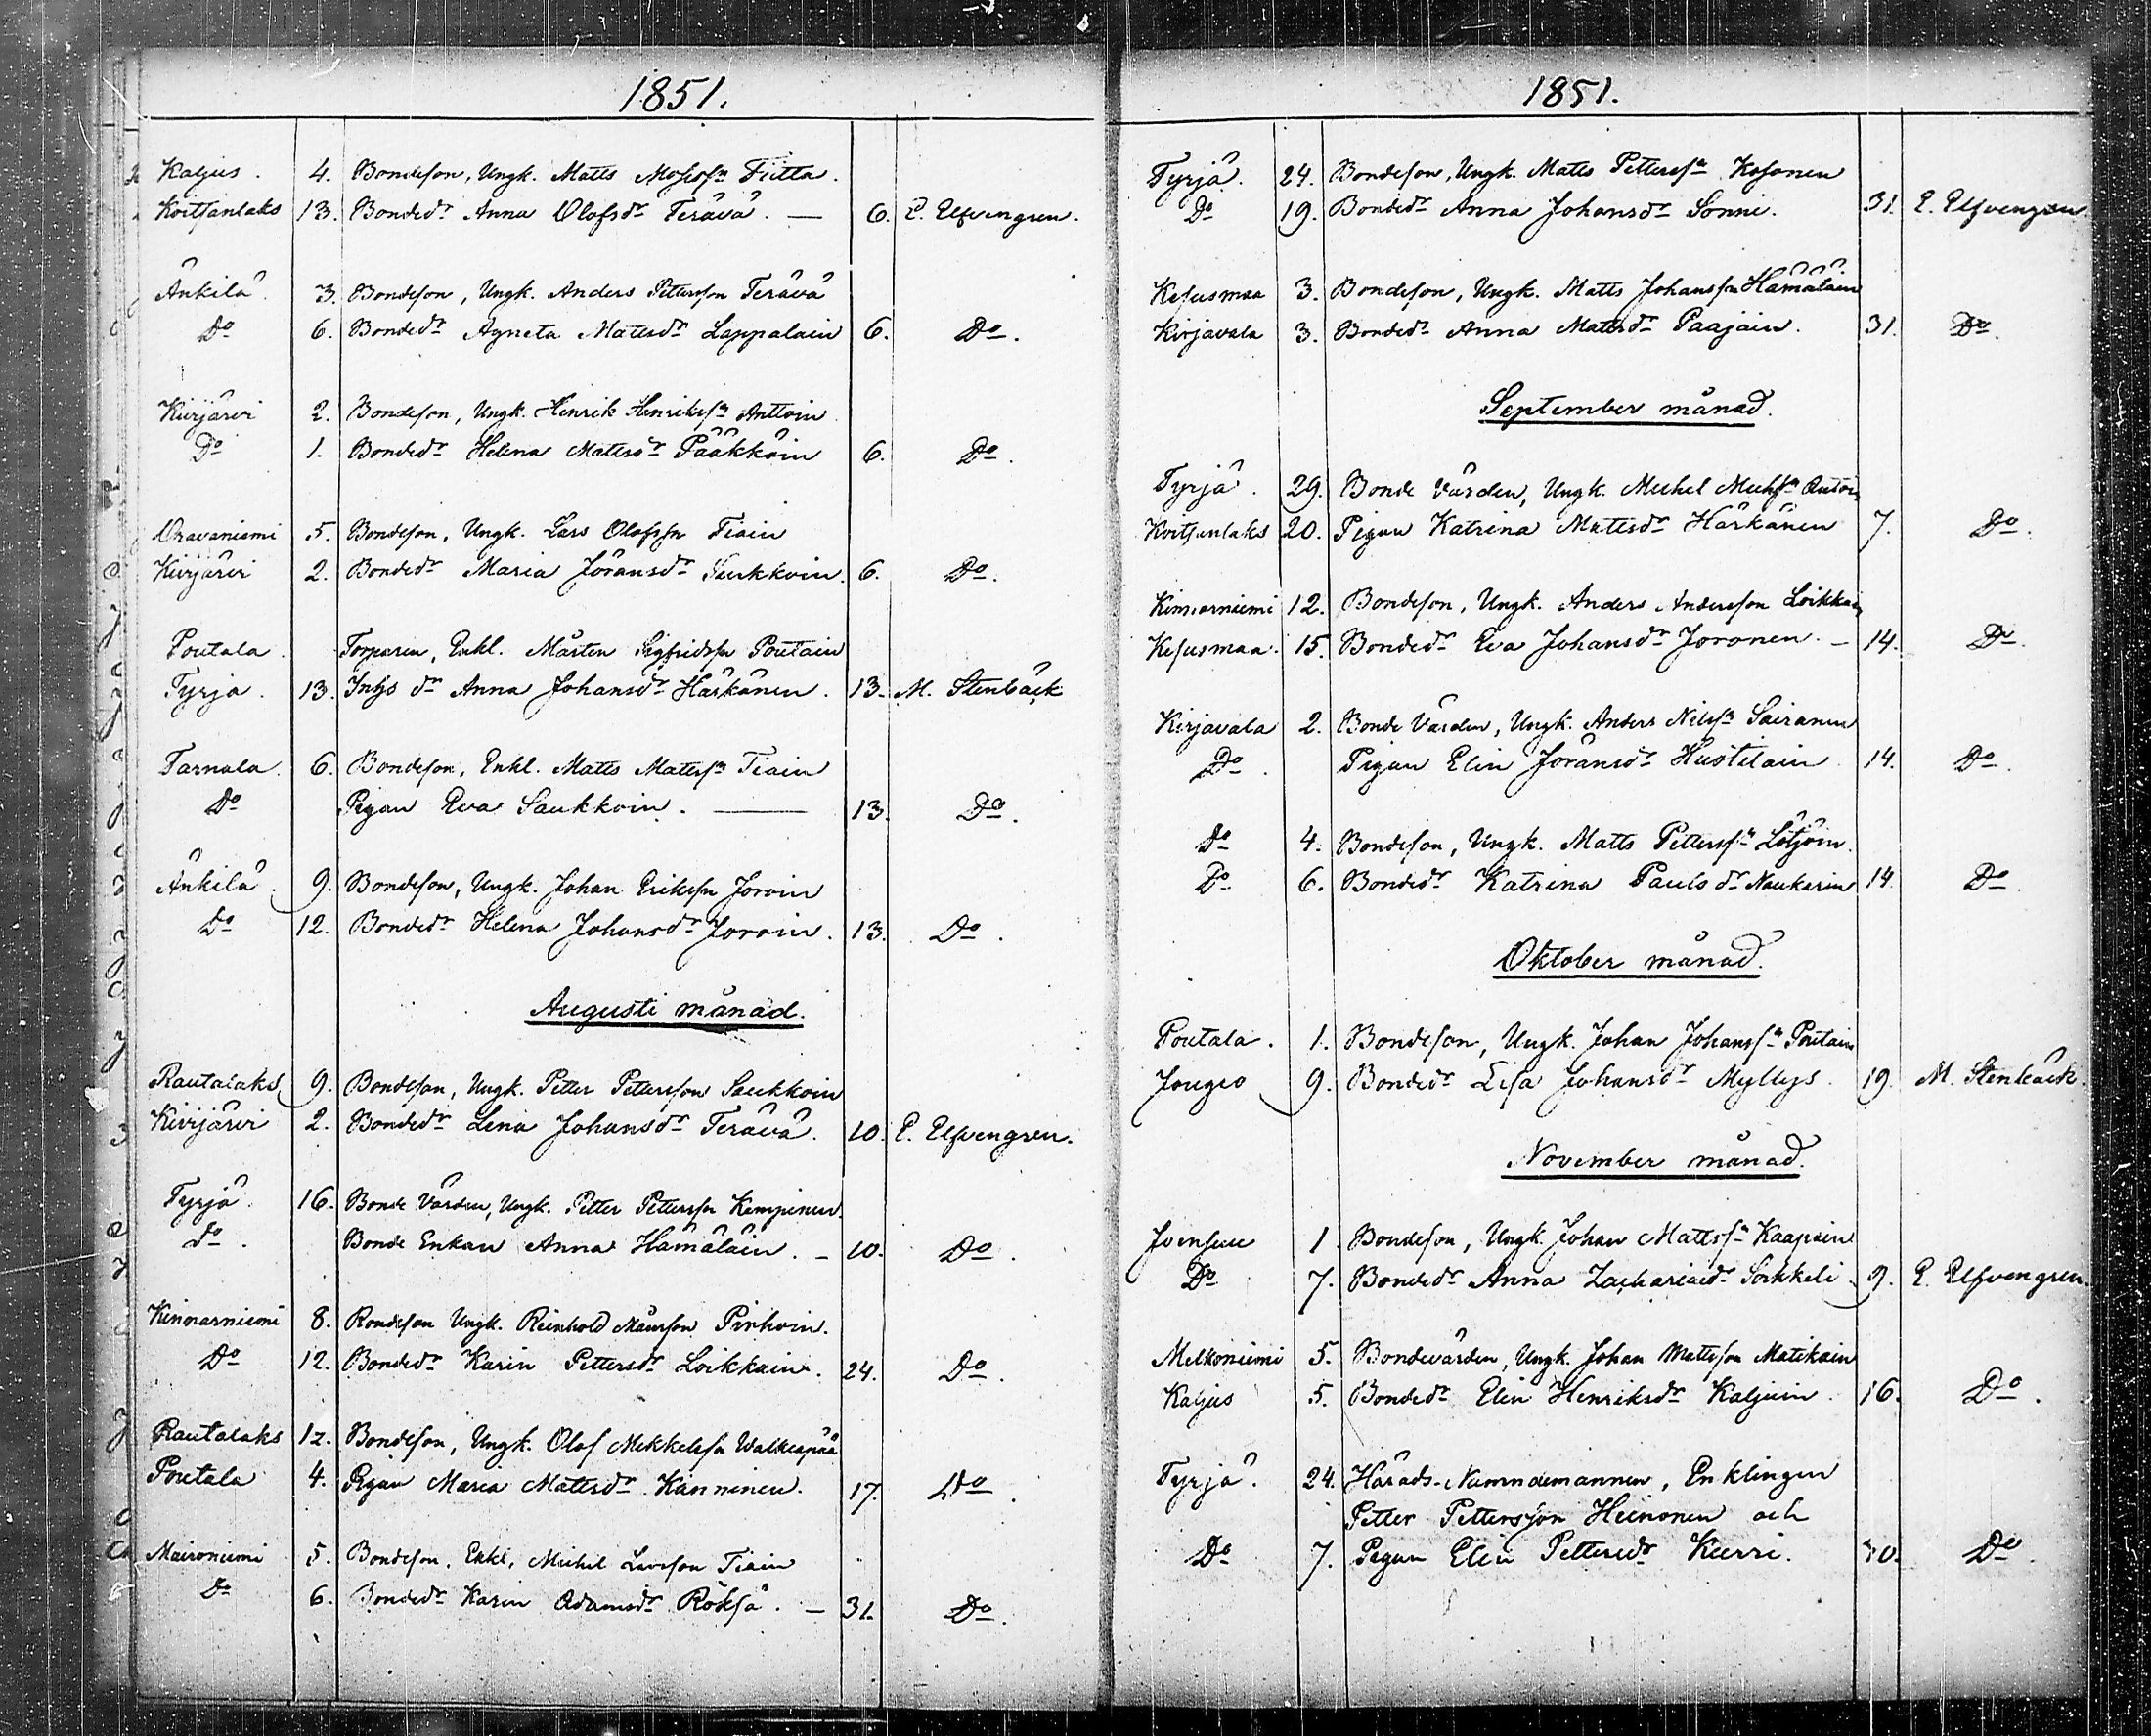 1851.
Kaljus. 4. Bondeson, Ungk. Matts Mosisn Tiitta.
Koitsanlaks 13. Bondedr Anna Olofsdr Terävä. — 6. E. Elfvengren.
Änkilä 3. Bondeson, Ungk. Anders Pettersson Terävä
Do 6. Bondedr Agneta Mattsdr Lappalain 6. Do.
Kivijärvi 2. Bondeson, Ungk. Henrik Henrikssn Anttoin
Do 1. Bondedr Helena Mattsdr Pääkköin 6. Do.
Oravaniemi 5. Bondeson, Ungk. Lars Olofssn Tiain
Kivijärvi 2. Bondedr Maria Jöransdr Saukkoin. 6. Do.
Poutala. Torparen, Enkl. Mårten Sigfridssn Poutain
Tyrjä. 13. Inhs dr Anna Johansdr Härkänen. 13. M. Stenbäck
Tarnala. 6. Bondeson, Enkl. Matts Mattssn Tiain
Do Pigan Eva Saukkoin. — 13. Do.
Änkilä. 9. Bondeson, Ungk. Johan Erikssn Joroin
Do 12. Bondedr Helena Johansdr Joroin. 13. Do.
Augusti månad.
Rautalaks 9. Bondeson, Ungk. Petter Pettersson Saukkoin
Kivijärvi 2. Bondedr Lena Johansdr Terävä. 10. E. Elfvengren.
Tyrjä. 16. Bonde Vården, Ungk. Petter Petterssn Kempinen.
Do. Bonde Enkan Anna Hämäläin. – 10. Do.
Kinnarniemi 8. Bondeson Ungk. Reinhold Månsson Pirhoin.
Do 12. Bondedr Karin Pettersdr Loikkain. 24. Do.
Rautalaks 12. Bondeson, Ungk. Olof Mikkelssn Walkeapää
Poutala 4. Pigan Maria Mattsdr Känninen. 17. Do.
Maironiemi 5. Bondeson, Enkl. Michel Larsson Tiain
Do 6. Bondedr Karin Adamsdr Röksä. – 31. Do.
1851.
Tyrjä. 24. Bondeson, Ungk. Matts Petterssn Kosonen
Do 19. Bondedr Anna Johansdr Sonni. 31. E. Elfvengren.
Kesusmaa 3. Bondeson, Ungk. Matts Johanssn Hämäläin
Kirjavala 3. Bondedr Anna Mattsdr Paajain. 31. Do.
September månad.
Tyrjä. 29. Bonde Vården, Ungk. Michel Michssn
Koitsanlaks 20. Pigan Katrina Mattsdr Härkänen 7. Do.
Kinnarniemi 12. Bondeson, Ungk. Anders Andersson Loikkain
Kesusmaa. 15. Bondedr Eva Johansdr Joronen. – 14. Do.
Kirjavala 2. Bonde Vården, Ungk. Anders Nilssn Sairanen
Do. Pigan Elin Jöransdr Hustilain 14. Do.
Do 4. Bondeson, Ungk. Matts Petterssn Lötjöin.
Do 6. Bondedr Katrina Paulsdr Naukarin 14. Do.
Oktober månad.
Poutala. 1. Bondeson, Ungk. Johan Johanssn Poutain
Jougio 9. Bondedr Lisa Johansdr Myllys. 19. M. Stenbäck.
November månad.
Joensuu 1. Bondeson, Ungk. Johan Mattssn Kaapoin
Do 7. Bondedr Anna Zachariaedr Sokkeli. 9. E. Elfvengren.
Melkoniemi 5. Bondevården, Ungk. Johan Mattsson Matikain
Kaljus 5. Bondedr Elin Henriksdr Kaljuin. 16. Do.
Tyrjä. 24. Härads-Nämndemannen, Enklingen
Petter Pettersson Heinonen och
Do 7. Pigan Elin Pettersdr Kurri. 30. Do.